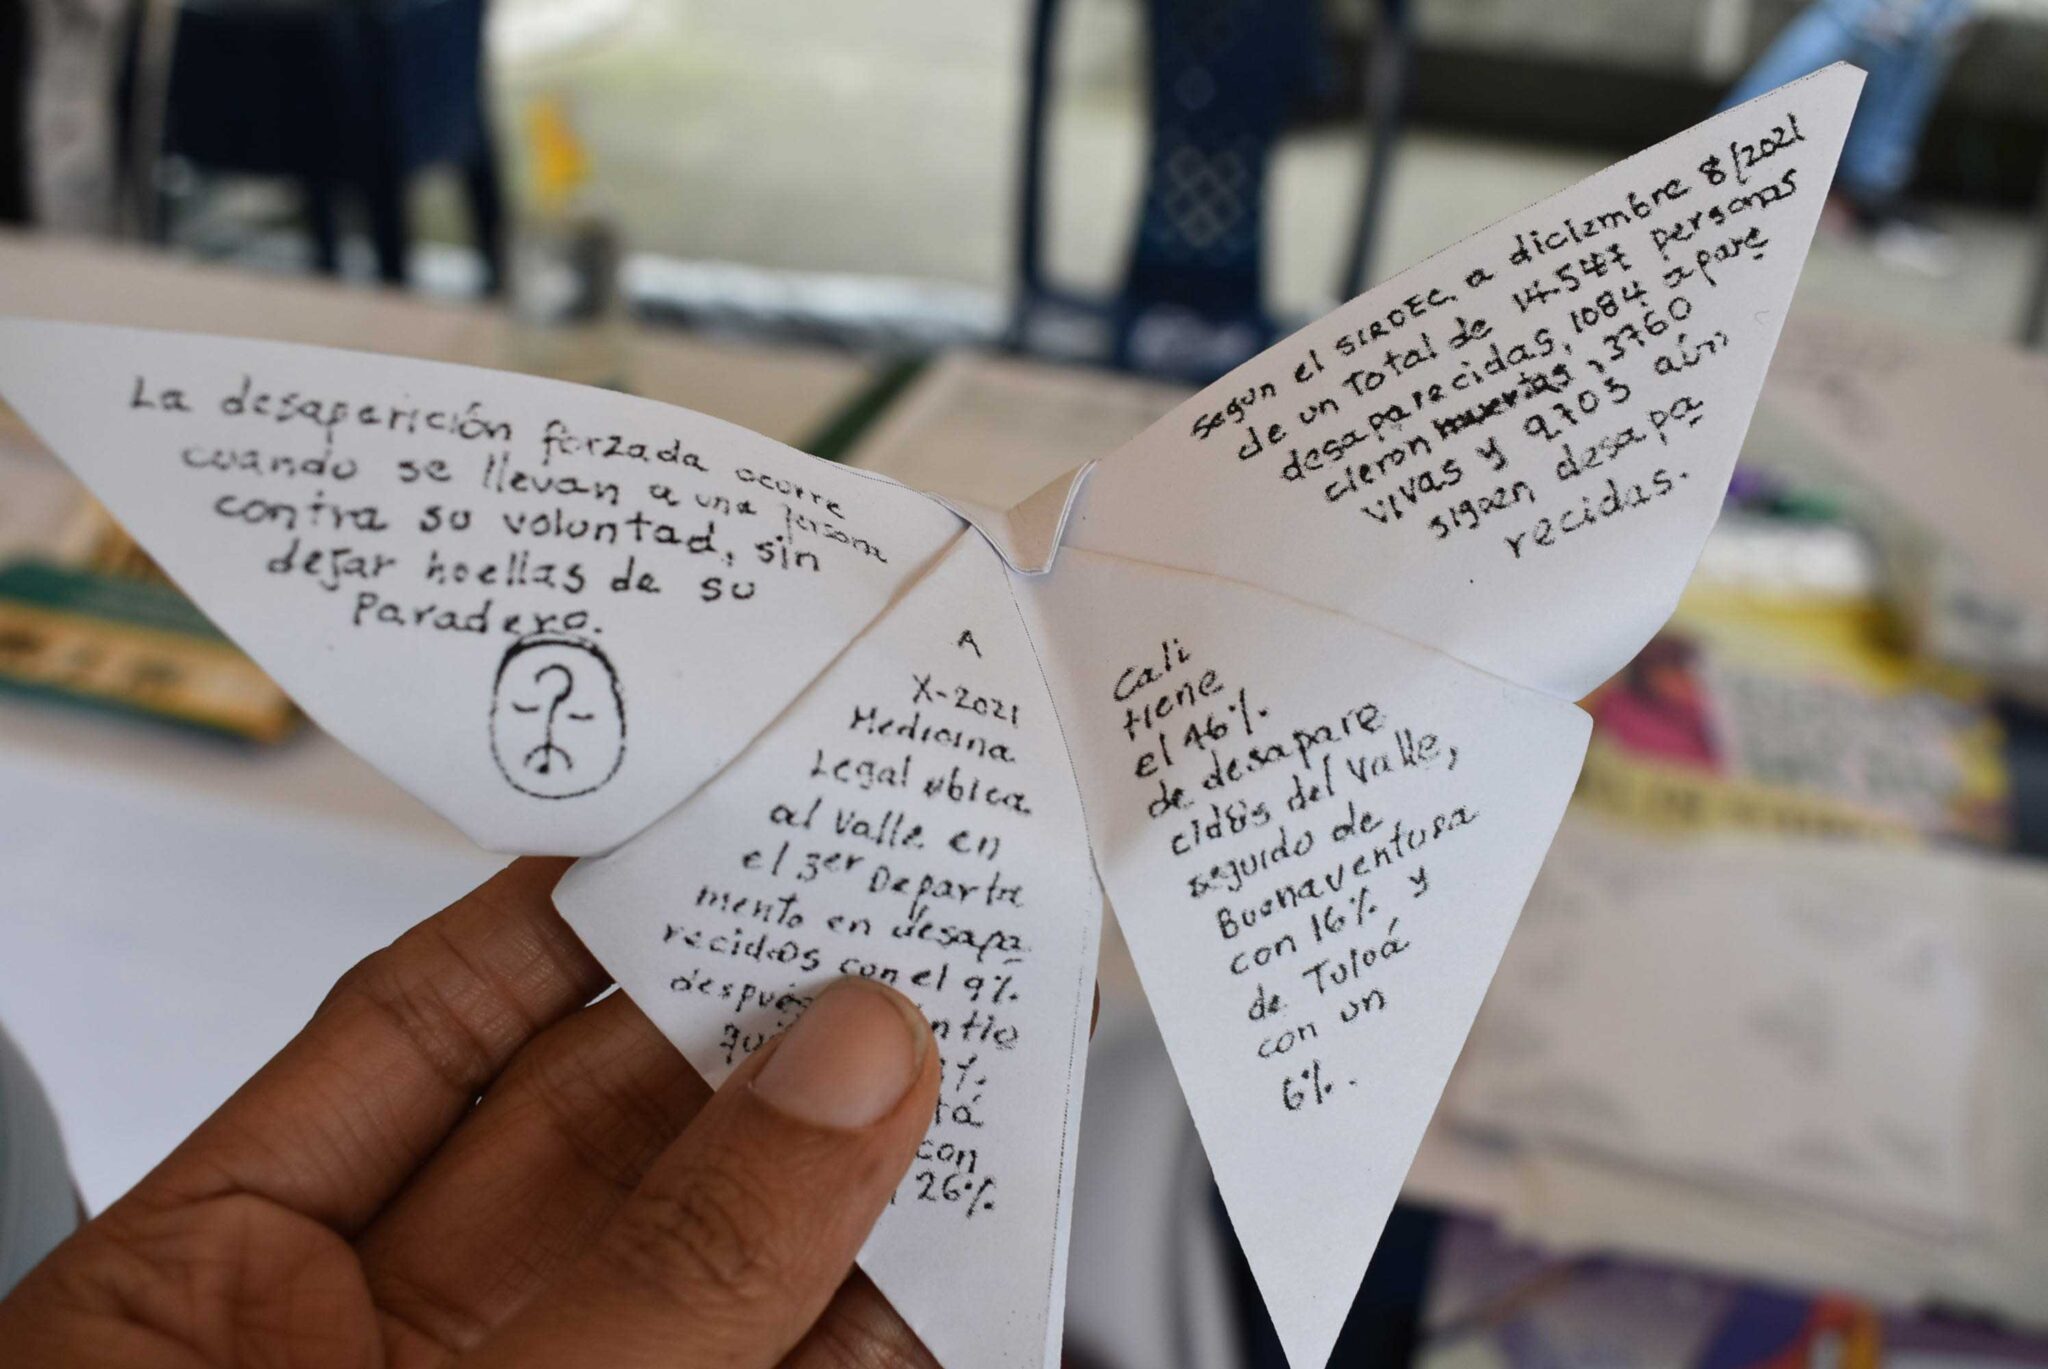 La desaperición forzada ocurre
cuando se llevan a una persona
contra su voluntad, sin
dejar huellas de su
paradero.
A
X-2021
Medicina
Legal ubica
al Valle en
el 3er Departa
mento en desapa
recidos con el 9%
después
con
26%
Cali
tiene
el 46%
de desapare
cidos del Valle,
seguido de
Buenaventura
con 16% y
de Tuluá
con un
6%.
Segun el SIRDEC, a diciembre 8/2021
de un total de 14.547 personas
desaparecidas, 1084 apare
cieron muertas, 3760
vivas y 9703 aún
siguen desapa
recidas.